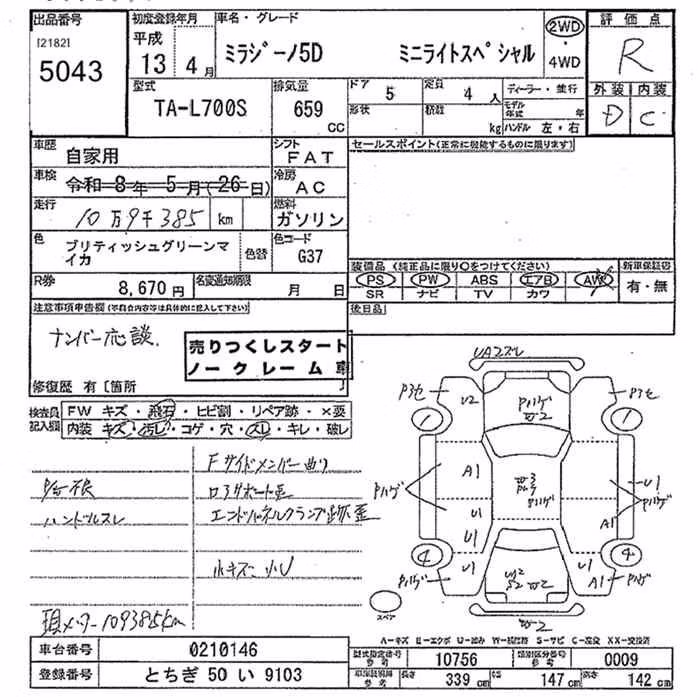 出品番号
[2182]
5043
初度登録年月
平成
13 4月
車名・グレード
ミラジーノ5D ミニライトスペシャル
2WD
・
4WD
評価点
R
外装 内装
D C
型式
TA-L700S
排気量
659
CC
ドア 5
定員 4 人
形状
積載 kg
ディーラー・並行
モデル年式 年
ハンドル 左・右
車歴 自家用
シフト FAT
車検 令和 8年 5月(26日)
冷房 AC
走行 10万9千385 km
燃料 ガソリン
色 ブリティッシュグリーンマイカ
色替
色コード G37
R券 8,670円
名変通知期限 月 日
セールスポイント(正常に機能するものに限ります)
装備品(純正品に限り○をつけてください)
PS PW ABS エアB AW
SR ナビ TV カワ
新車保証書
有・無
後日品
注意事項申告欄(不具合内容等は具体的に記入して下さい)
ナンバー応談.
売りつくしスタート
ノークレーム車
修復歴 有〔箇所 〕
検査員記入欄
FW キズ・飛石・ヒビ割・リペア跡・×要
内装 キズ・汚レ・コゲ・穴・スレ・キレ・破レ
Fサイドメンバー曲り
ハンドルスレ
エンドパネルクランプ跡歪
小キズ、小U
現メーター109385km
UA2ズレ
P3セ
U2
Pハゲ
W2
P3セ
1
1
A1
U1
U1
U1
W3
Pハゲ
Pハゲ
U1
Pハゲ
A1
4
4
Pハゲ
U1
A1
Pハゲ
W2
スペア
A-キズ E-エクボ U-凹み W-補修跡 S-サビ C-腐食 XX-交換済
車台番号 0210146
登録番号 とちぎ 50 い 9103
型式指定番号 参考 10756
類別区分番号 参考 0009
車検証明細 参考
長さ 339 cm
幅 147 cm
高さ 142 cm